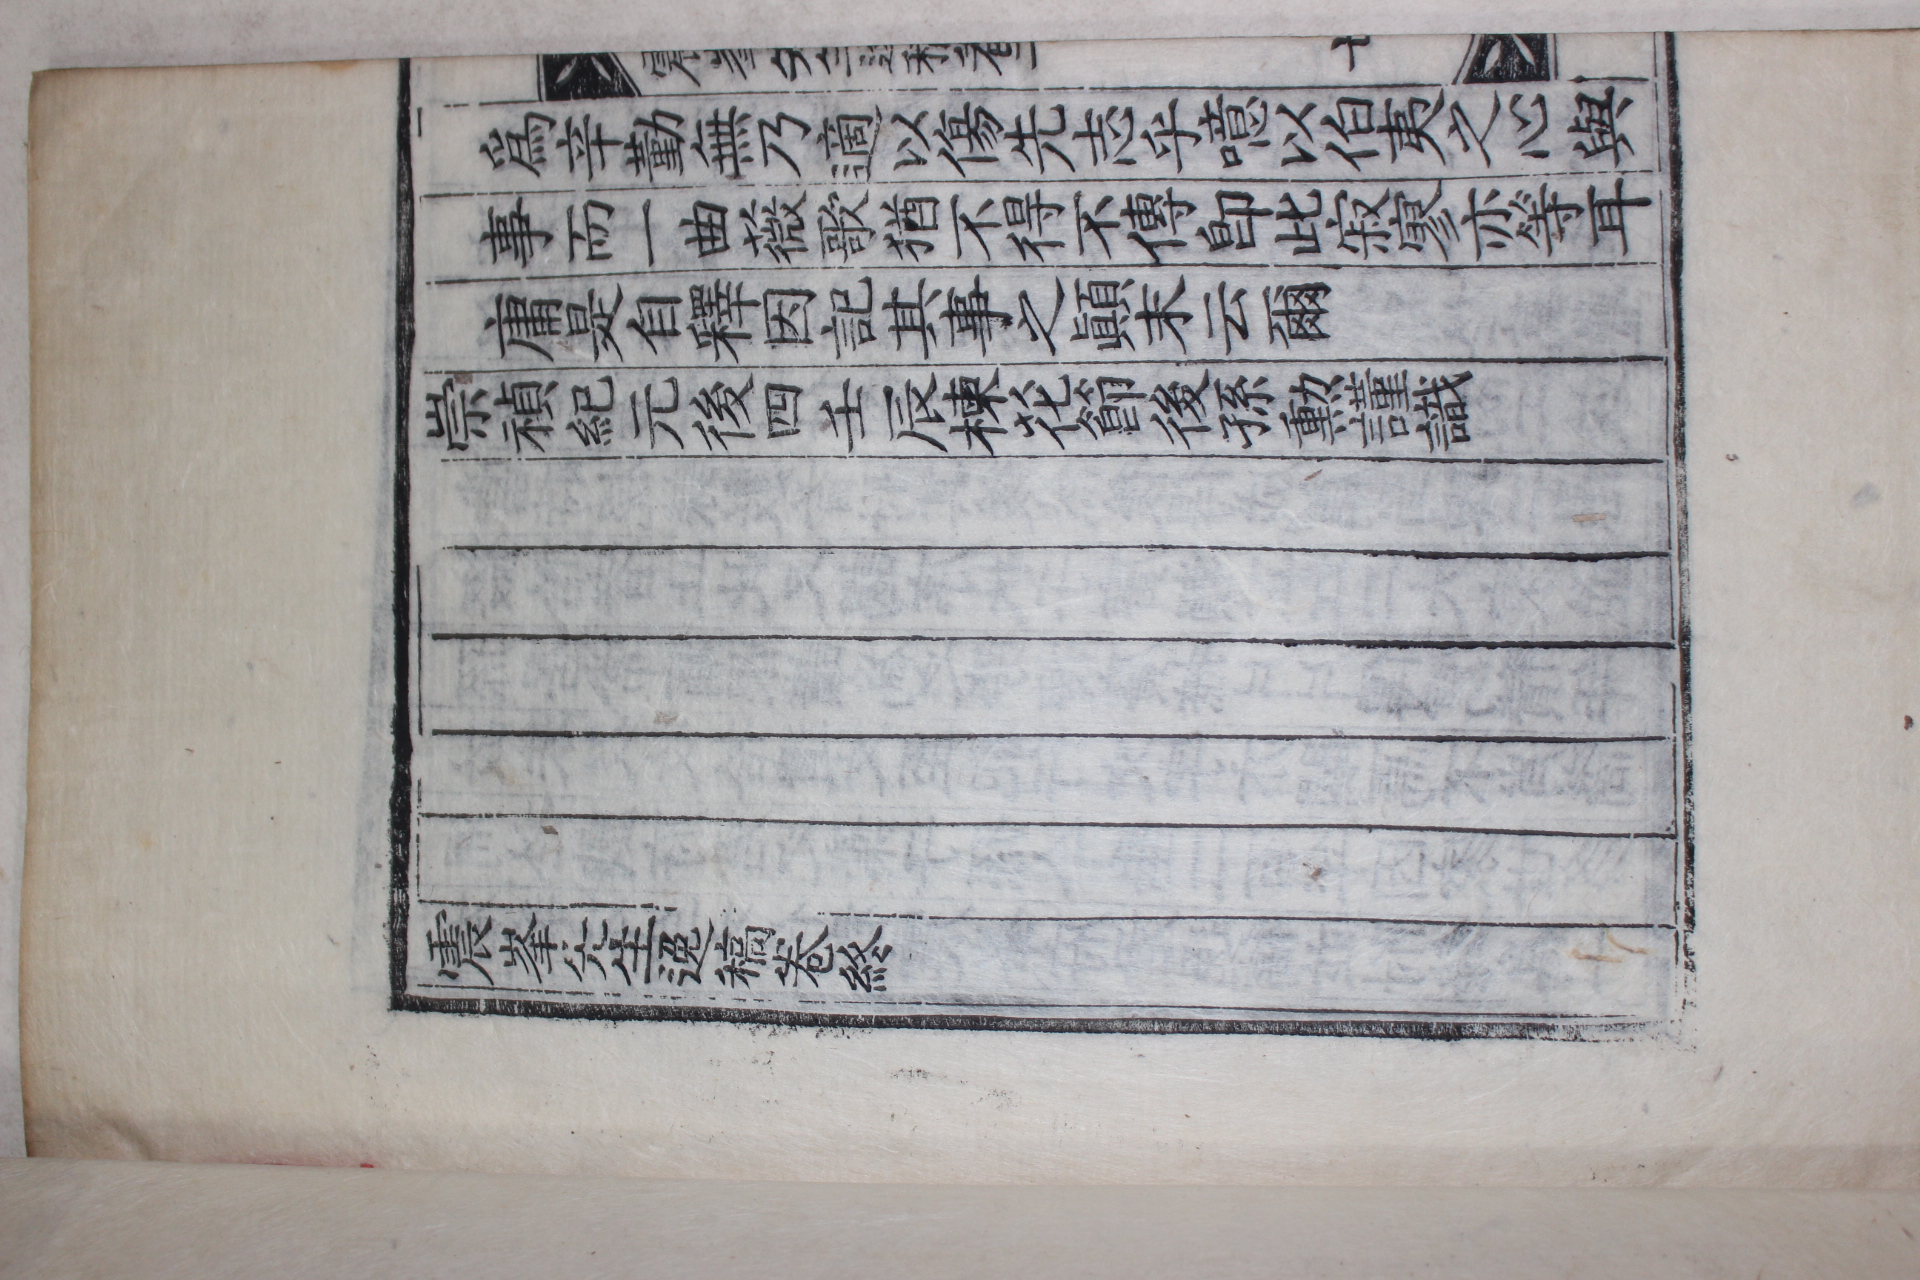 爲辛勤無乃適以傷先志乎噫以伯夷之心與
事而一曲薇歌猶不得不傳卽此寂寥亦等耳
庸是自釋因記其事之顚末云爾
崇禎紀元後四壬辰楝花節後孫勲謹識
震峯先生逸稿卷終